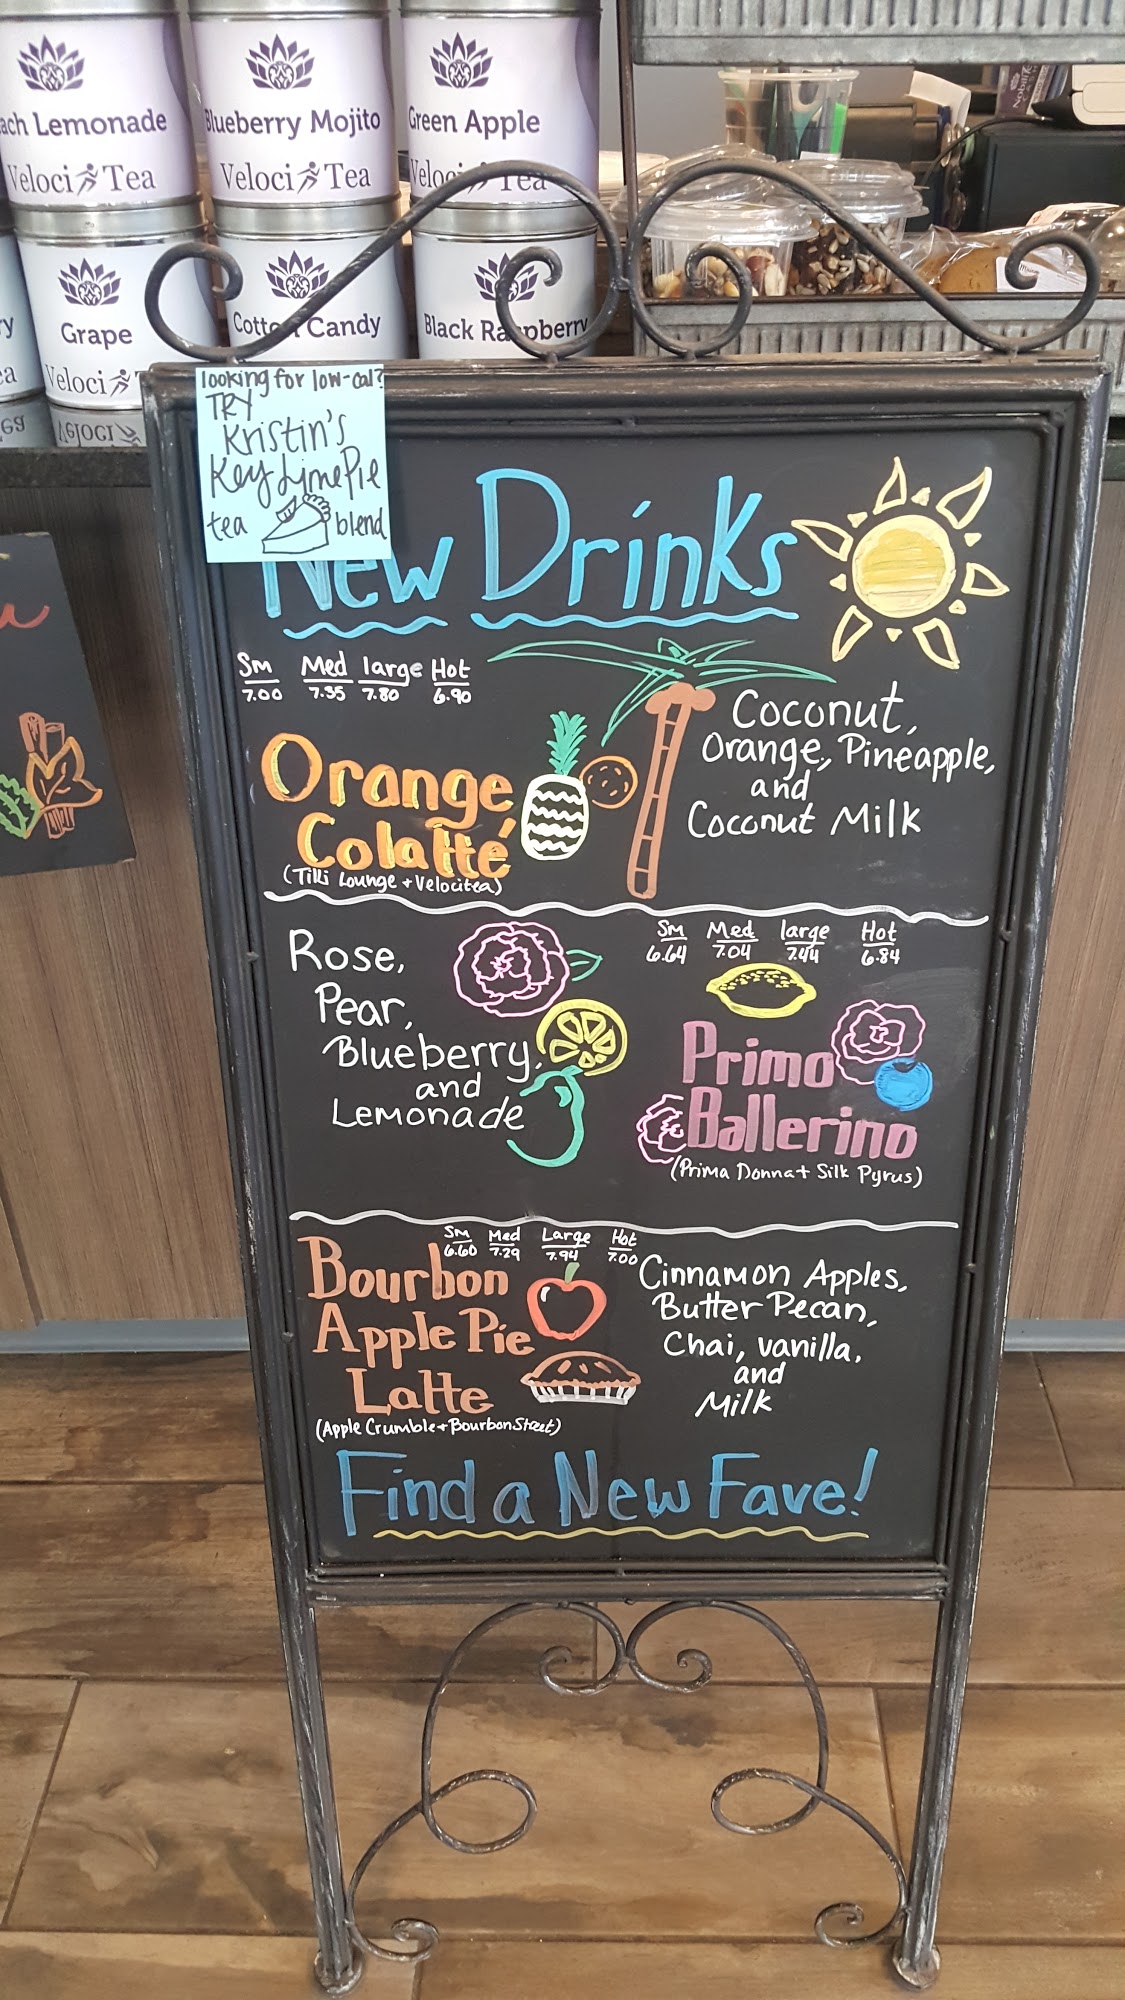 ach Lemonade
Veloci Tea
Blueberry Mojito
Veloci Tea
Green Apple
Veloci Tea
Grape
Veloci
Cotton Candy
Black Raspberry
looking for low-cal?
TRY
Kristin's
Key Lime Pie
tea blend
New Drinks
Sm Med large Hot
7.00 7.35 7.80 6.90
Orange
Colatté
(Tilli Lounge + Velocitea)
Coconut,
Orange, Pineapple,
and
Coconut Milk
Rose,
Pear,
Blueberry,
and
Lemonade
Sm Med large Hot
6.64 7.04 7.44 6.84
Primo
Ballerino
(Prima Donna + Silk Pyrus)
Sm Med Large Hot
6.60 7.29 7.94 7.00
Bourbon
Apple Pie
Latte
(Apple Crumble + Bourbon Street)
Cinnamon Apples,
Butter Pecan,
Chai, vanilla,
and
Milk
Find a New Fave!